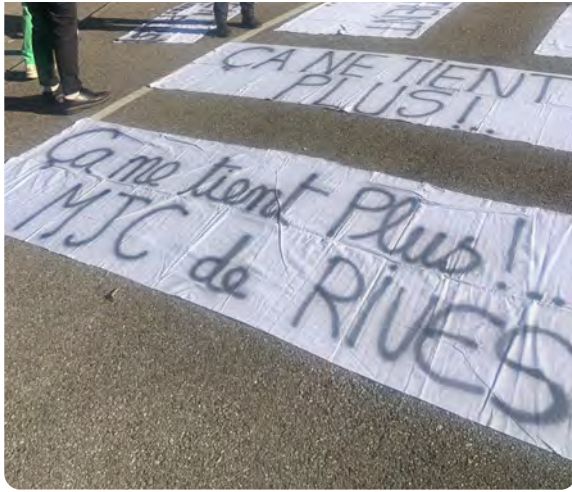 ÇA NE TIENT
PLUS!...
Ça ne tient Plus!...
MJC de RIVES